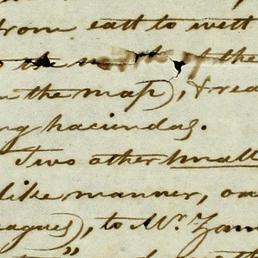 from east to west
the north of the
the map), & rea
ng haciendas.
Two other small
like manner, on
eagues), to Mr. Zam